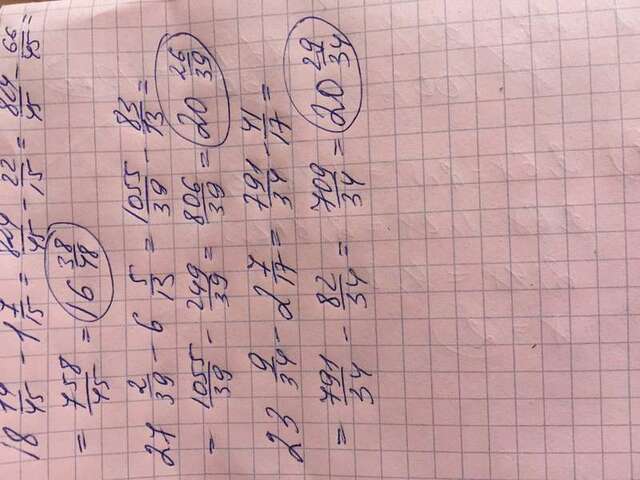 18 14/45 - 1 7/15 = 824/45 - 22/15 = 824/45 - 66/45 =
= 758/45 = 16 38/48
27 2/39 - 6 5/13 = 1055/39 - 83/13 =
= 1055/39 - 249/39 = 806/39 = 20 26/39
23 9/34 - 2 7/17 = 791/34 - 41/17 =
= 791/34 - 82/34 = 709/34 = 20 29/34